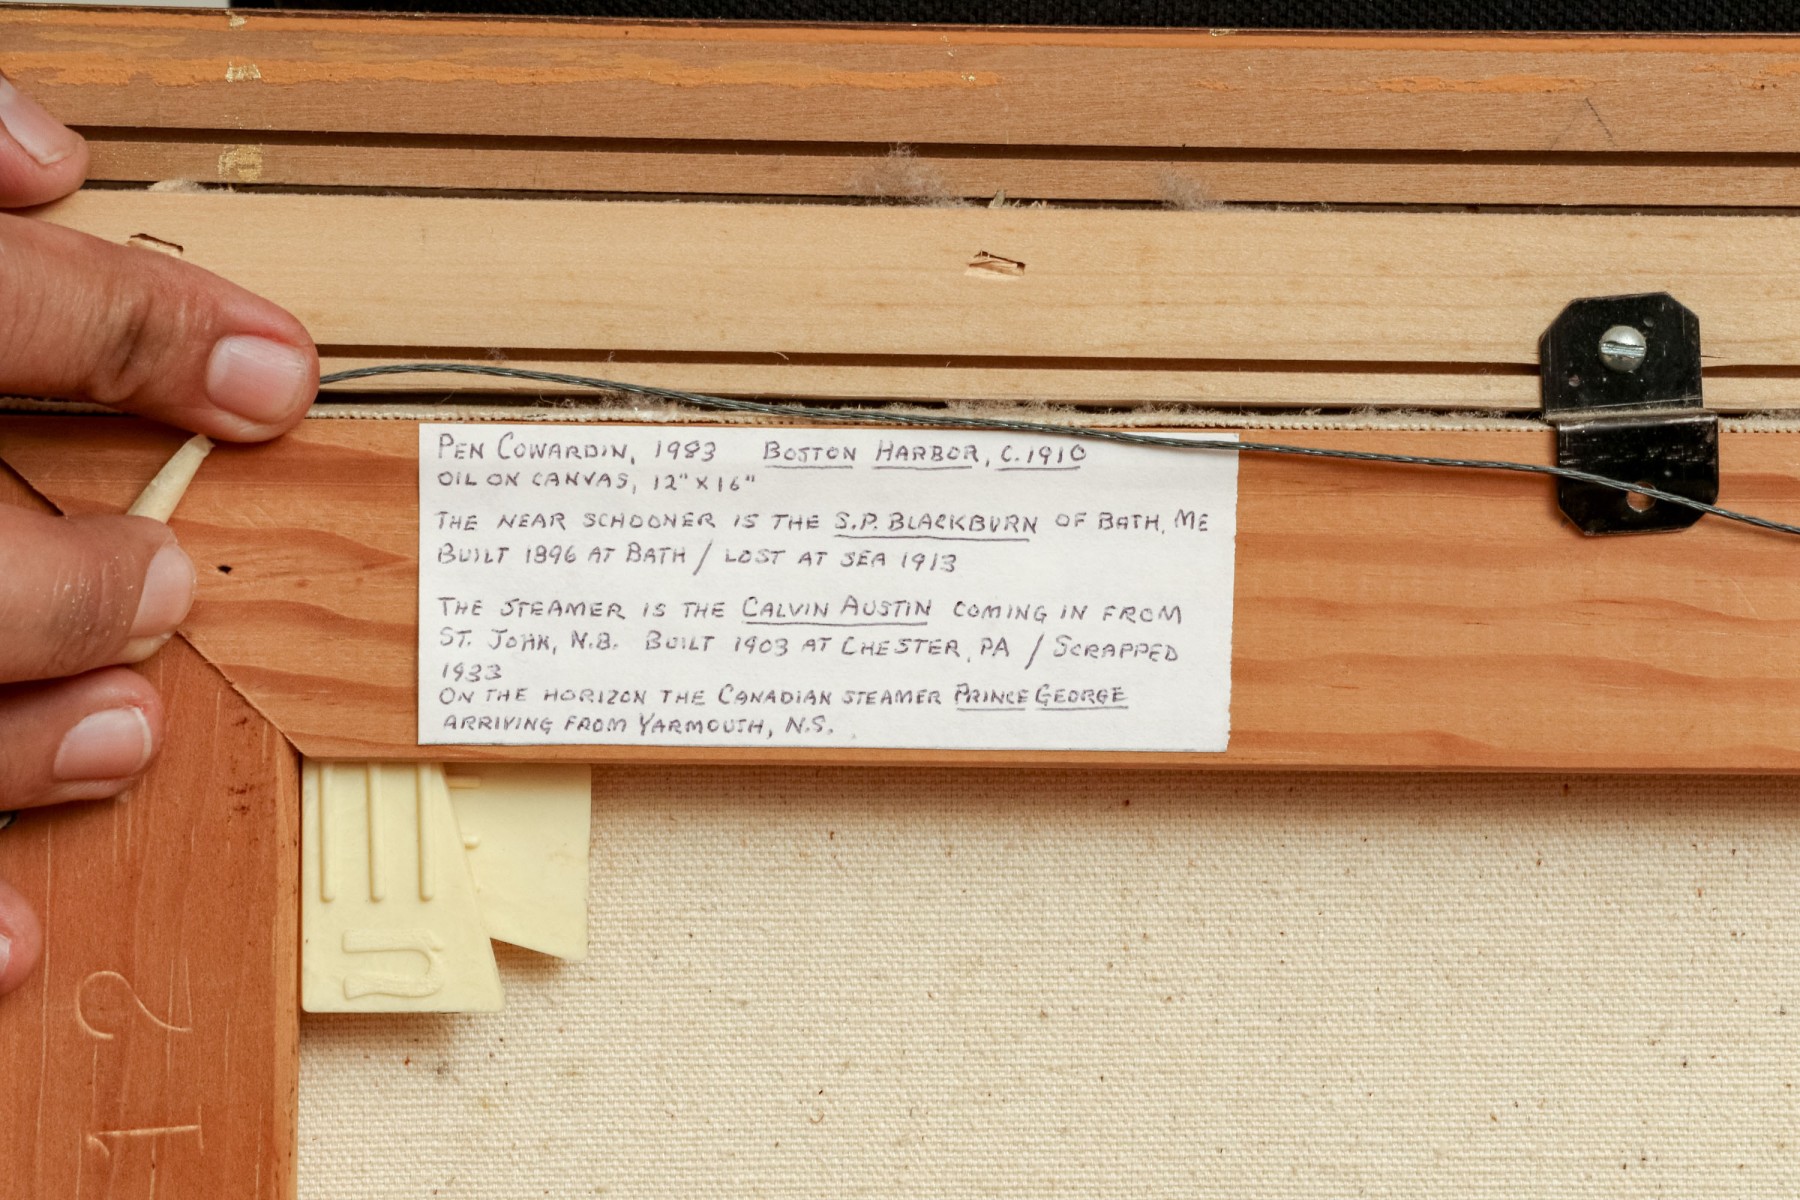 PEN COWARDIN, 1983 BOSTON HARBOR, C.1910
OIL ON CANVAS, 12" X 16"
THE NEAR SCHOONER IS THE S.P. BLACKBURN OF BATH, ME
BUILT 1896 AT BATH / LOST AT SEA 1913
THE STEAMER IS THE CALVIN AUSTIN COMING IN FROM
ST. JOHN, N.B. BUILT 1903 AT CHESTER, PA / SCRAPPED
1933
ON THE HORIZON THE CANADIAN STEAMER PRINCE GEORGE
ARRIVING FROM YARMOUTH, N.S.
12